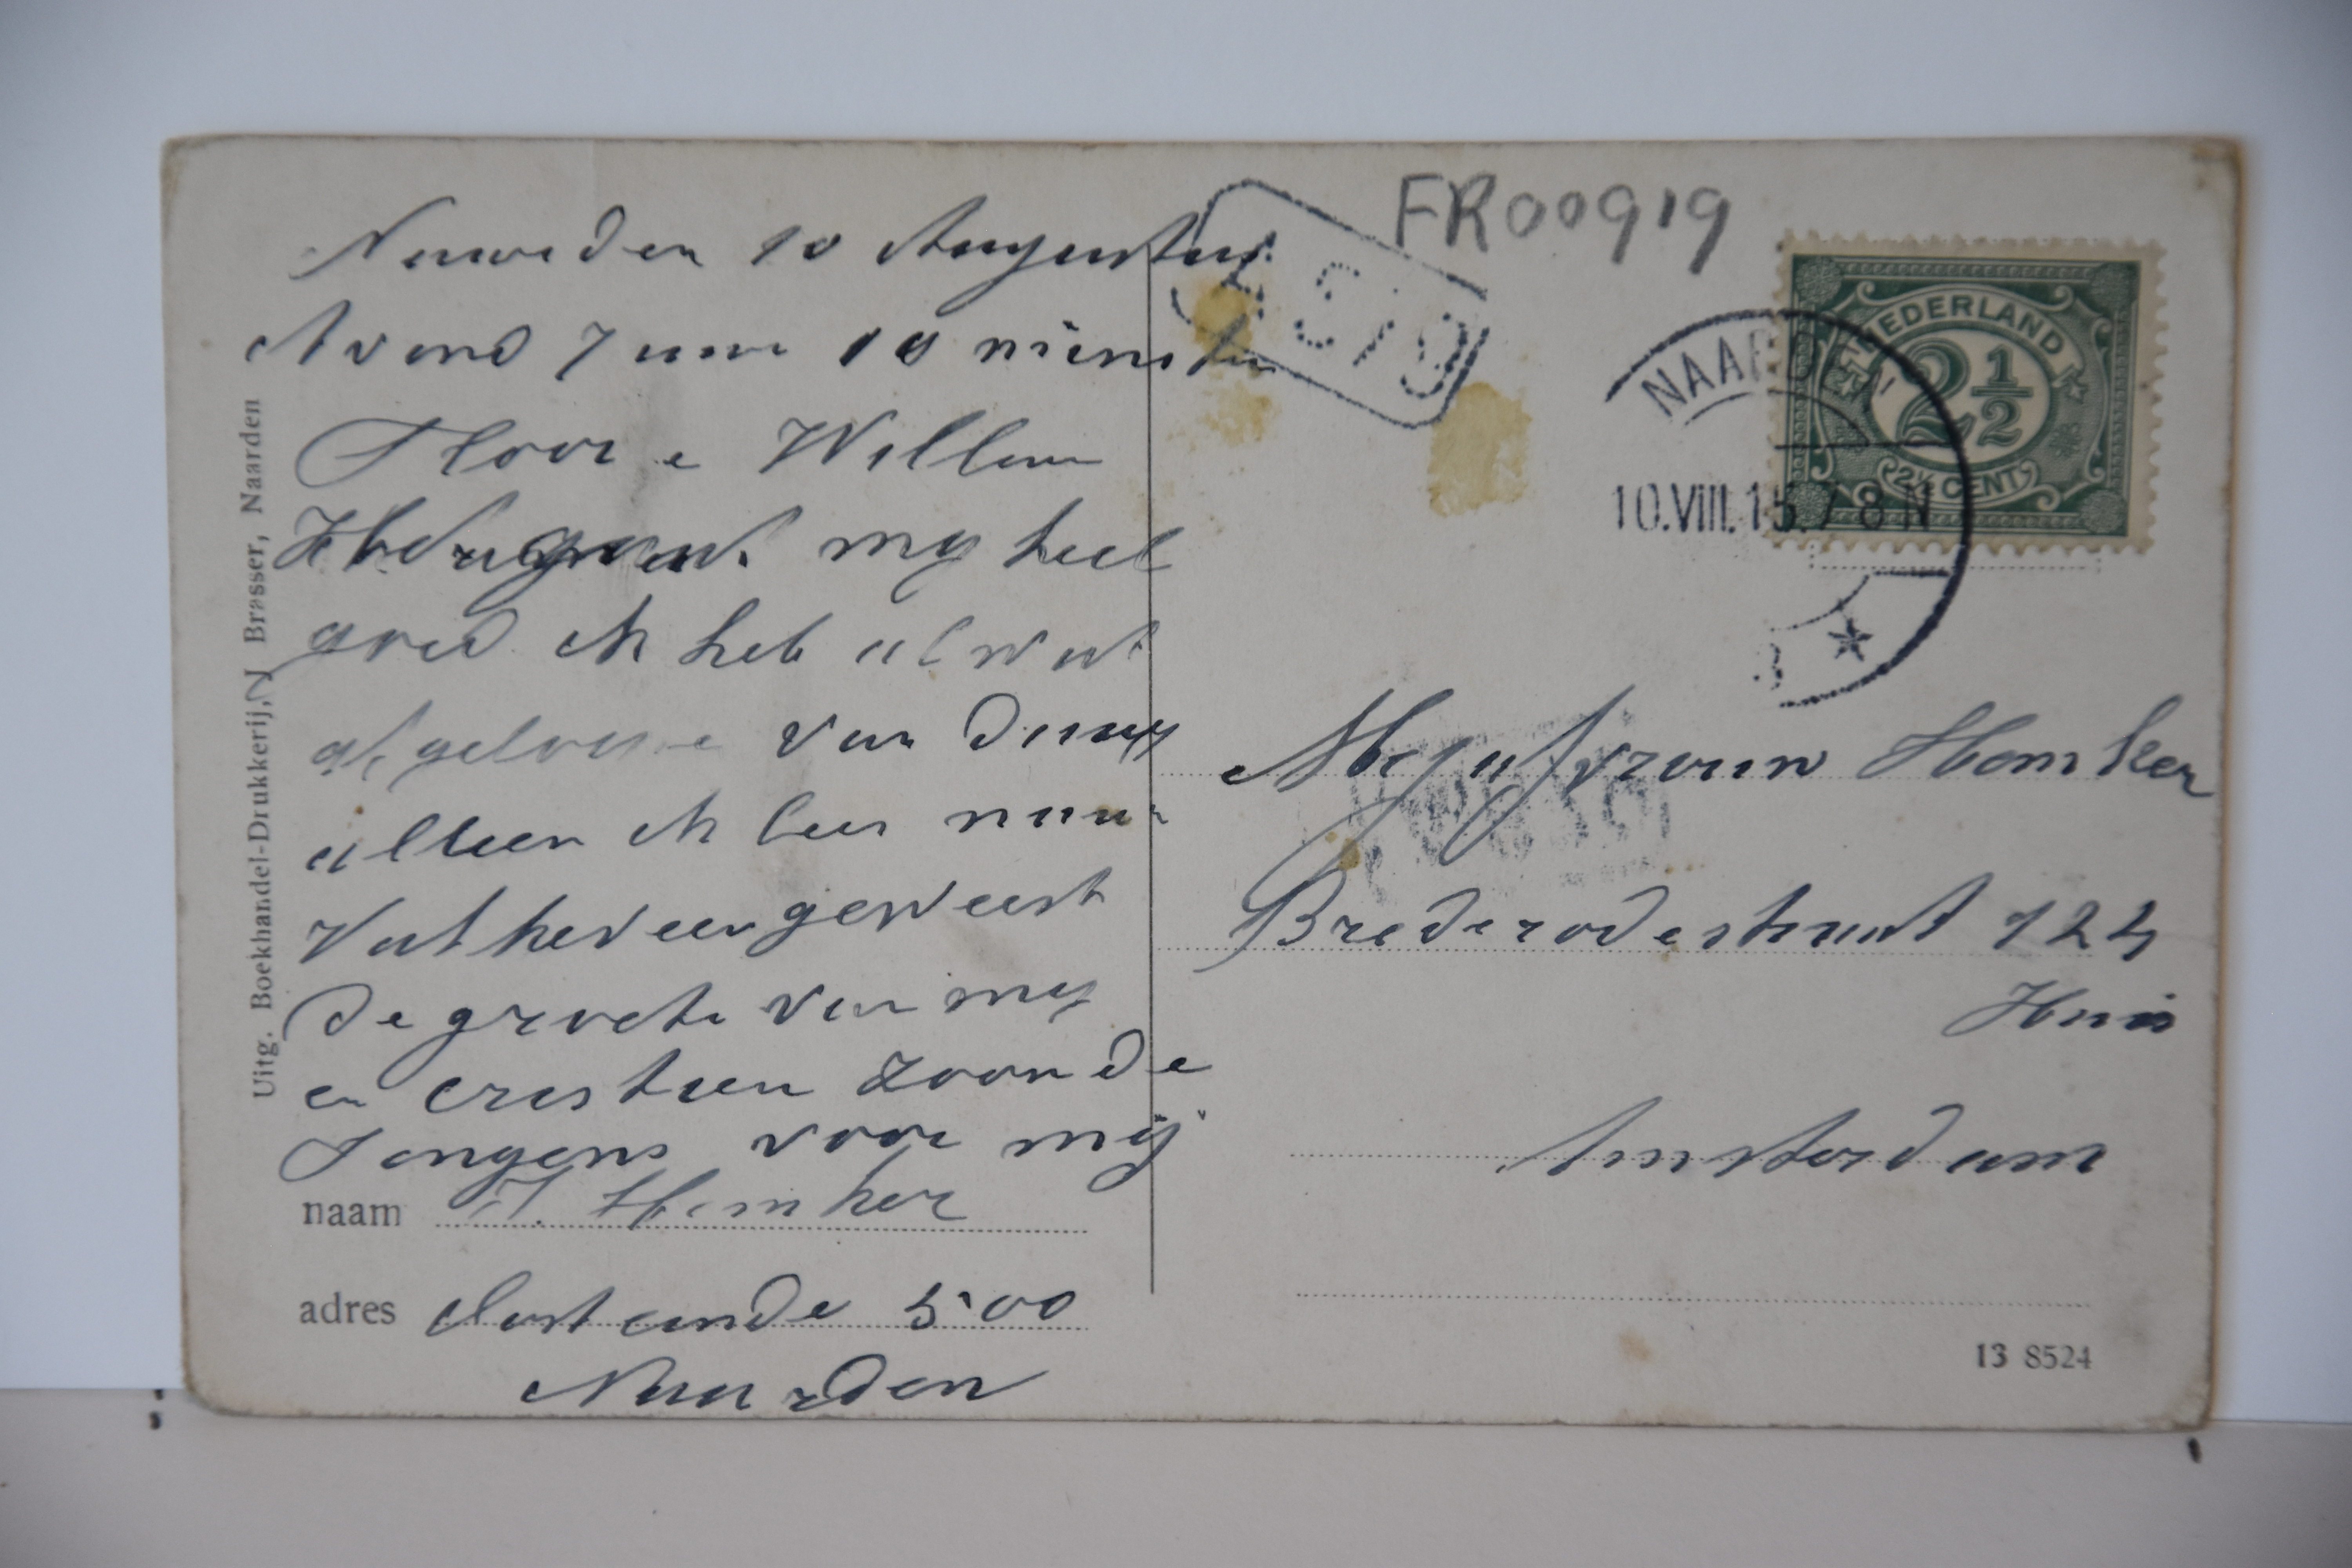 Naarden 10 Augustus
Avond 7 uur 10 minuten
Floor e Willem
my heel
goed ik heb al wat
van daag
alleen ik ben naar
geweest
de groete van my
en cristien zoen de
Jongens voor mij
naam J. Homker
adres Oosteinde 500
Naarden
Uitg. Boekhandel-Drukkerij, N. J. Brasser, Naarden
FR00919
NEDERLAND
2 1/2
2 1/2 CENT
NAARDEN
10.VIII.15.7-8N
Mejufvrouw Homker
Brederodestraat 124
Huis
Amsterdam
13 8524